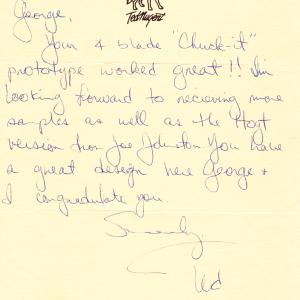 Ted Nugent
George,
Your 4 blade "Chuck-it"
prototype worked great!! I'm
looking forward to recieving more
samples as well as the Hoyt
version from Joe Johnston You have
a great design here George &
I congradulate you.
Sincerely,
Ted